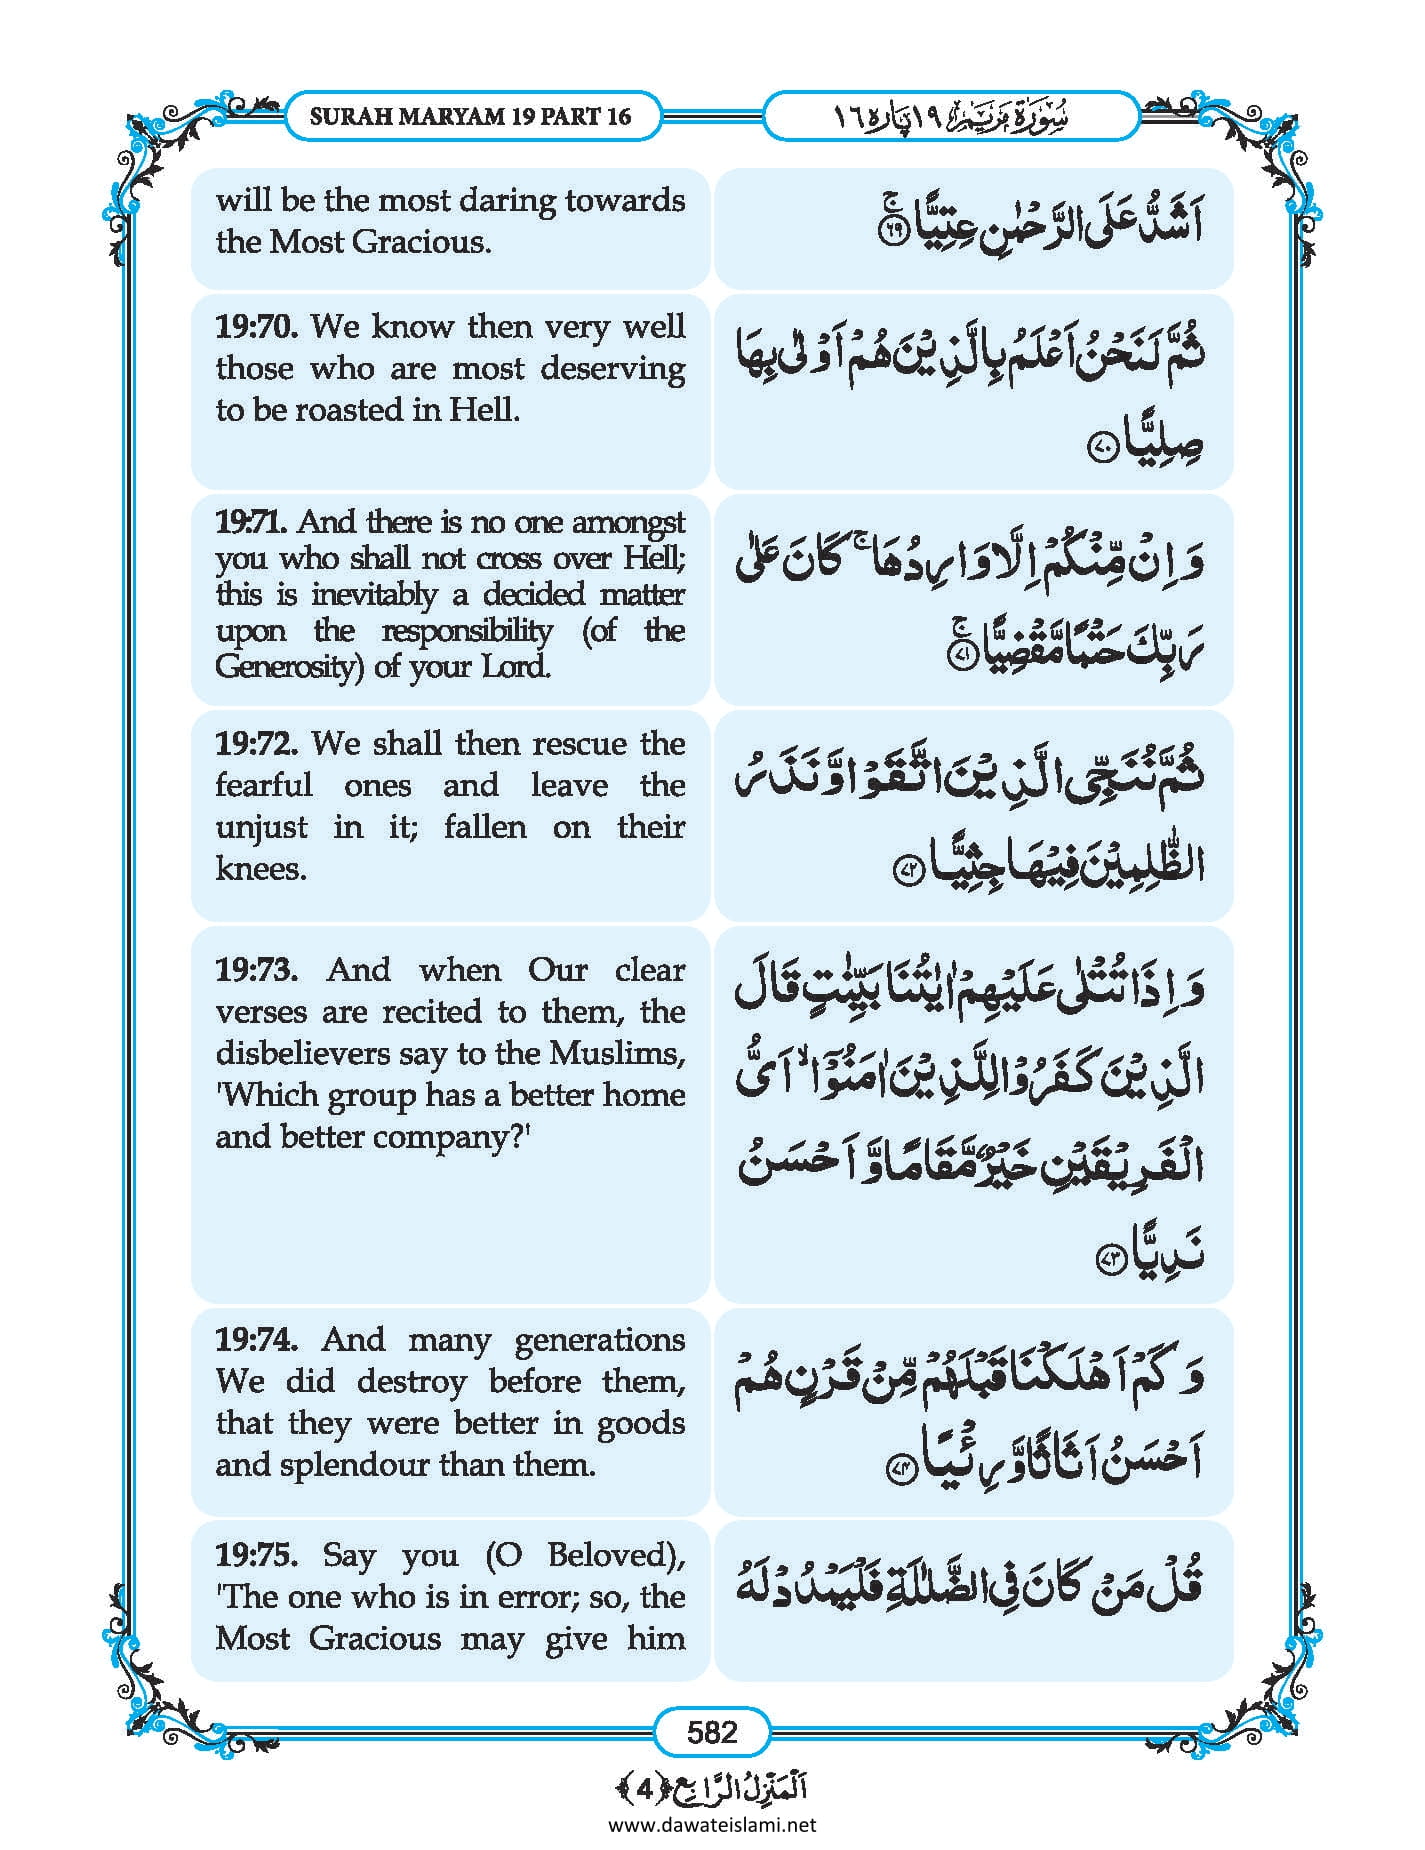 SURAH MARYAM 19 PART 16
سُوۡرَۃُ مَرۡیَم ١٩ پَارہ ١٦
will be the most daring towards
the Most Gracious.
اَشَدُّ عَلَی الرَّحْمٰنِ عِتِیًّا ۚ﴿۶۹﴾
19:70. We know then very well
those who are most deserving
to be roasted in Hell.
ثُمَّ لَنَحْنُ اَعْلَمُ بِالَّذِیۡنَ ہُمْ اَوْلٰی بِہَا
صِلِیًّا ﴿۷۰﴾
19:71. And there is no one amongst
you who shall not cross over Hell;
this is inevitably a decided matter
upon the responsibility (of the
Generosity) of your Lord.
وَ اِنۡ مِّنۡکُمْ اِلَّا وَارِدُہَا ۚ کَانَ عَلٰی
رَبِّکَ حَتْمًا مَّقْضِیًّا ۚ﴿۷۱﴾
19:72. We shall then rescue the
fearful ones and leave the
unjust in it; fallen on their
knees.
ثُمَّ نُنَجِّی الَّذِیۡنَ اتَّقَوۡا وَّ نَذَرُ
الظّٰلِمِیۡنَ فِیۡہَا جِثِیًّا ﴿۷۲﴾
19:73. And when Our clear
verses are recited to them, the
disbelievers say to the Muslims,
'Which group has a better home
and better company?'
وَ اِذَا تُتْلٰی عَلَیۡہِمْ اٰیٰتُنَا بَیِّنٰتٍ قَالَ
الَّذِیۡنَ کَفَرُوۡا لِلَّذِیۡنَ اٰمَنُوۡۤا ۙ اَیُّ
الْفَرِیۡقَیۡنِ خَیۡرٌ مَّقَامًا وَّ اَحْسَنُ
نَدِیًّا ﴿۷۳﴾
19:74. And many generations
We did destroy before them,
that they were better in goods
and splendour than them.
وَکَمْ اَہۡلَکْنَا قَبْلَہُمۡ مِّنۡ قَرْنٍ ہُمْ
اَحْسَنُ اَثَاثًا وَّ رِءْیًا ﴿۷۴﴾
19:75. Say you (O Beloved),
'The one who is in error; so, the
Most Gracious may give him
قُلْ مَنۡ کَانَ فِی الضَّلٰلَۃِ فَلْیَمْدُدْ لَہُ
582
اَلْمَنْزِلُ الرَّابِع ﴿4﴾
www.dawateislami.net